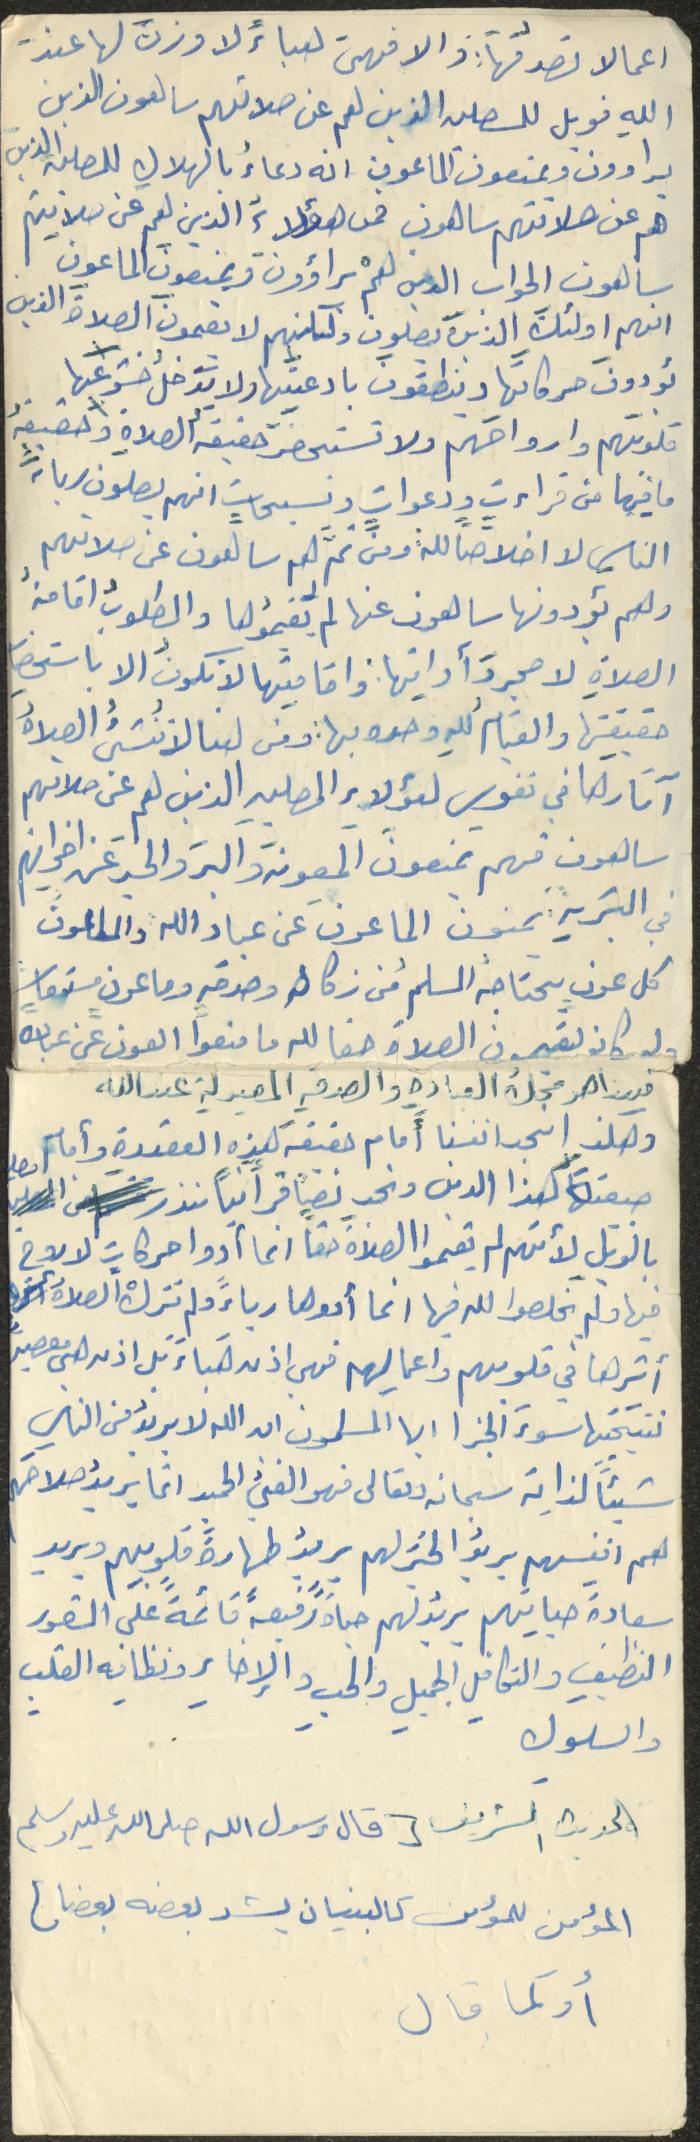 اعمالا تصدقها: والا فهي هباءً لا وزن لها عند
الله فويل للمصلين الذين هم عن صلاتهم ساهون الذين
يراؤون ويمنعون الماعون انه دعاءٌ بالهلاك للمصلين الذين
هم عن صلاتهم ساهون فمن هؤلاء الذين هم عن صلاتهم
ساهون الجواب الذين هم يراؤون ويمنعون الماعون
انهم اولئك الذين يصلون ولكنهم لا يقيمون الصلاة الذين
يؤدون حركاتها وينطقون بادعيتها ولا يدخل خشوعها
قلوبهم وارواحهم ولا تستحضر حقيقة الصلاة وحقيقة
ما فيها من قراءتٍ ودعواتٍ وتسبيحاتٍ انهم يصلون رياءً
الناس لا اخلاصاً لله ومن ثمَّ هم ساهون عن صلاتهم
وهم يؤدونها ساهون عنها لم يُقيمُوها والمطلوبُ اقامةُ
الصلاةِ لا مجردَ أدائها: واقامتها لا تكونُ الا باستحضار
حقيقتها والقيامُ للهِ وحده بها: ومن هنا لا تُنشئُ الصلاةُ
آثارها في نفوس هؤلاء المصلين الذين هم عن صلاتهم
ساهون فهم يمنعونَ المعونةَ والبرَ والخيرَ عن اخوانهم
في البشريةِ: يمنعون الماعون عن عباد الله والماعون
كل عونٍ يحتاجهُ المسلم من زكاه وصدقهٍ وماعونٍ
ولو كانو يقيمون الصلاة حقا لله ما منعوا العون عن عباده
فهذا هو محكُ العبادةِ والصدقهِ المقبولة عند الله
وهكذا نجد انفسنا أمام حقيقة هذه العقيدةِ وأمام
هذا الدين ونجد نصاً قرآنياً ينذر المصلين
بالويل لأنهم لم يقيموا الصلاةَ حقاً انما أدوا حركاتٍ لا روح
فيها ولم يخلصوا لله فيها انما أدوها رياءً ولم تتركْ الصلاةُ
أثرها في قلوبهم واعمالهم فهي اذن هباءً بل اذن هي معصيةٌ
نتيجتُها سوءَ الجزا ايها المسلمون ان الله لا يريدُ من الناس
شيئاً لذاته سبحانه وتعالى فهو الغنيُ الحميد انما يريدُ صلاحهم
هم انفسهم يريدُ الخيرَ لهم يريدُ طهارةَ قلوبهم ويريد
سعادةَ حياتهم يريدُ لهم حياةً رفيعةً قائمةً على الشعور
النظيفِ والتكافلِ الجميل والحبِ والإخاءِ ونظافه القلبِ
والسلوك
الحديث الشريف قال رسول الله صلى الله عليه وسلم
المؤمن للمؤمن كالبنيان يشد بعضه بعضا
أو كما قال